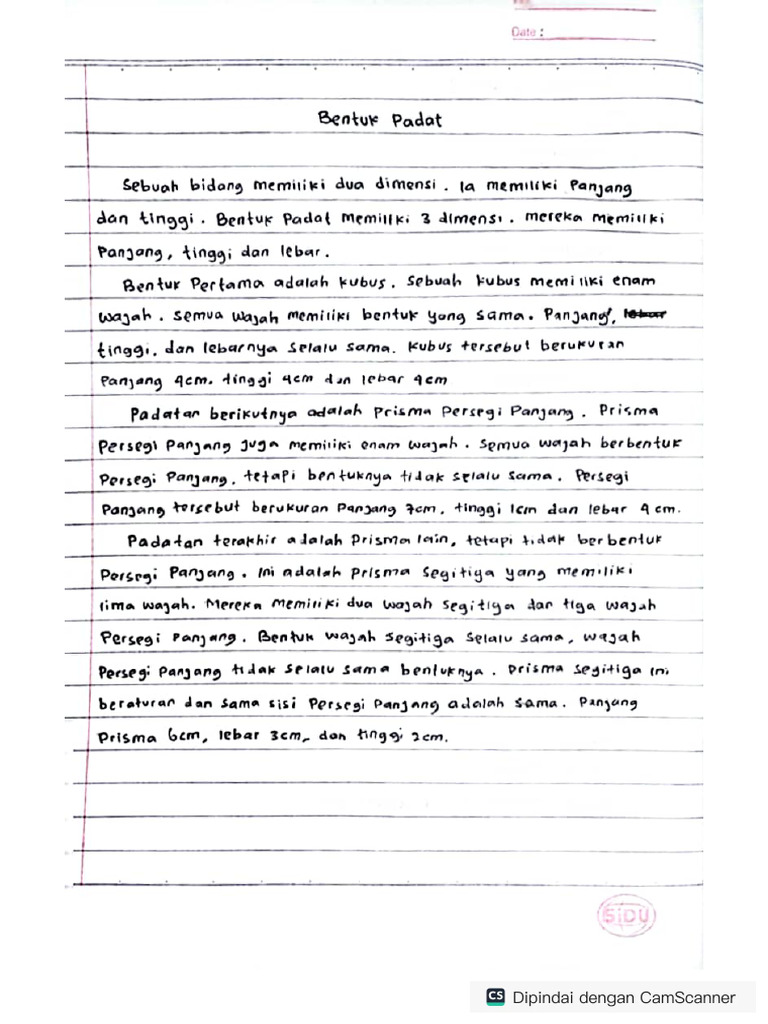 Date :
Bentuk Padat
Sebuah bidang memiliki dua dimensi. Ia memiliki Panjang
dan tinggi. Bentuk Padat memiliki 3 dimensi. mereka memiliki
Panjang, tinggi dan lebar.
Bentuk Pertama adalah kubus. Sebuah kubus memiliki enam
wajah. Semua wajah memiliki bentuk yang sama. Panjang,
tinggi, dan lebarnya selalu sama. Kubus tersebut berukuran
Panjang 4cm, tinggi 4cm dan lebar 4cm
Padatan berikutnya adalah Prisma Persegi Panjang. Prisma
Persegi Panjang Juga memiliki enam wajah. Semua wajah berbentuk
Persegi Panjang, tetapi bentuknya tidak selalu sama. Persegi
Panjang tersebut berukuran Panjang 7cm, tinggi 1cm dan lebar 4 cm.
Padatan terakhir adalah Prisma lain, tetapi tidak berbentuk
Persegi Panjang. Ini adalah Prisma Segitiga yang memiliki
lima wajah. Mereka memiliki dua wajah segitiga dan tiga wajah
Persegi Panjang. Bentuk wajah segitiga selalu sama, wajah
Persegi Panjang tidak selalu sama bentuknya. Prisma segitiga ini
beraturan dan sama sisi Persegi Panjang adalah sama. Panjang
Prisma 6cm, lebar 3cm, dan tinggi 2cm.
SiDU
CS Dipindai dengan CamScanner